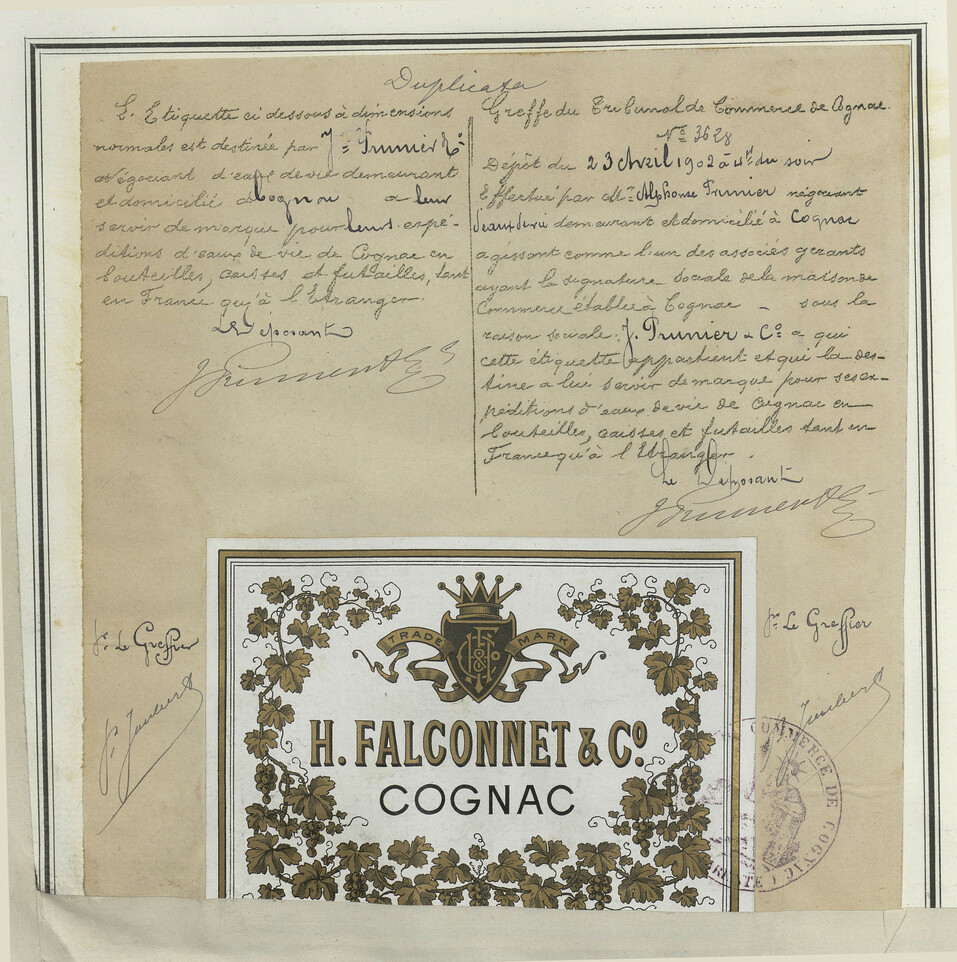 Duplicata
L'Etiquette ci dessous à dimensions
normales est destinée par J. Prunier & Co
négociant d'eaux de vie demeurant
et domicilié à Cognac a leur
servir de marque pour leurs expé-
ditions d'eaux de vie de Cognac en
bouteilles, caisses et futailles, tant
en France qu'à l'Etranger.
Le Déposant
J Prunier & Co
Greffe du Tribunal de Commerce de Cognac.
No 3628
Dépôt du 23 Avril 1902 à 4h du soir
Effectué par Mr Alphonse Prunier négociant
d'eaux de vie demeurant et domicilié à Cognac
agissant comme l'un des associés gérants
ayant la signature sociale de la maison de
Commerce établie à Cognac - sous la
raison sociale: J. Prunier & Co a qui
cette étiquette appartient et qui la des-
tine a lui servir de marque pour ses ex-
péditions d'eaux de vie de Cognac en
bouteilles, caisses et futailles tant en
France qu'à l'Etranger
Le Déposant
J Prunier & Co
pr Le Greffier
pr Le Greffier
TRADE MARK
HF & Co
H. FALCONNET & Co.
COGNAC
COMMERCE DE COGNAC